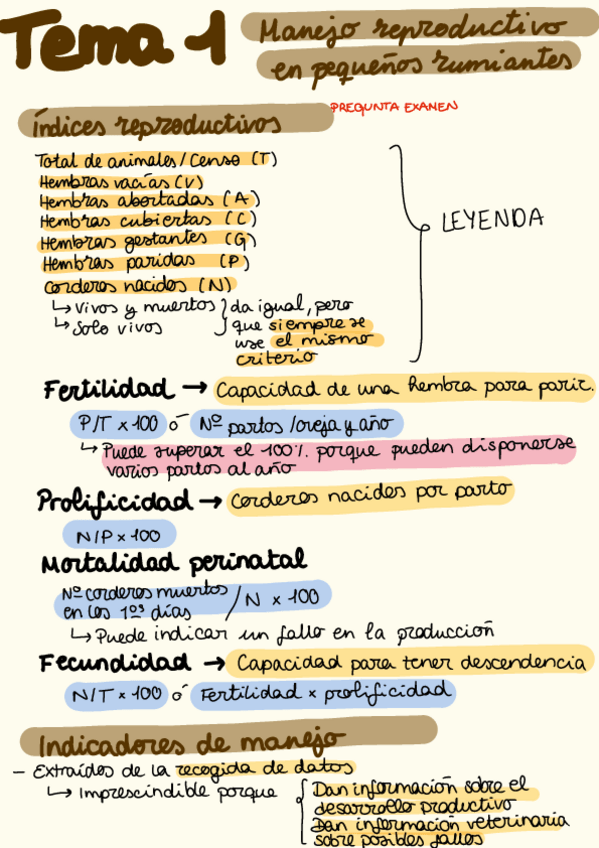 Tema 1
Manejo reproductivo
en pequeños rumiantes
PREGUNTA EXAMEN
Índices reproductivos
Total de animales/censo (T)
Hembras vacías (V)
Hembras abortadas (A)
Hembras cubiertas (C)
Hembras gestantes (G)
Hembras paridas (P)
Corderos nacidos (N)
↳ Vivos y muertos } da igual, pero
↳ Solo vivos que siempre se
use el mismo
criterio
LEYENDA
Fertilidad → Capacidad de una hembra para parir.
P/T x 100 ó Nº partos /oveja y año
↳ Puede superar el 100%. porque pueden disponerse
varios partos al año
Prolificidad → Corderos nacidos por parto
N/P x 100
Mortalidad perinatal
Nº corderos muertos
en los 1ºs días / N x 100
↳ Puede indicar un fallo en la producción
Fecundidad → Capacidad para tener descendencia
N/T x 100 ó Fertilidad x prolificidad
Indicadores de manejo
– Extraídos de la recogida de datos
↳ Imprescindible porque { Dan información sobre el
desarrollo productivo
Dan información veterinaria
sobre posibles fallos